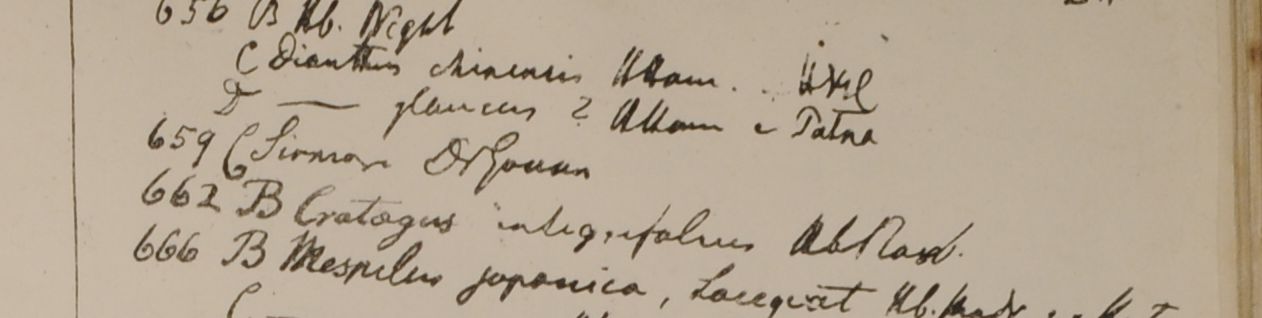 656 B Hb. Wight
C Dianthus chinensis Assam.
D — glaucus ? Assam & Patna
659 C Sirmore
662 B Cratægus integrifolius Hb Roxb.
666 B Mespilus japonica, Loccquat Hb. Madr